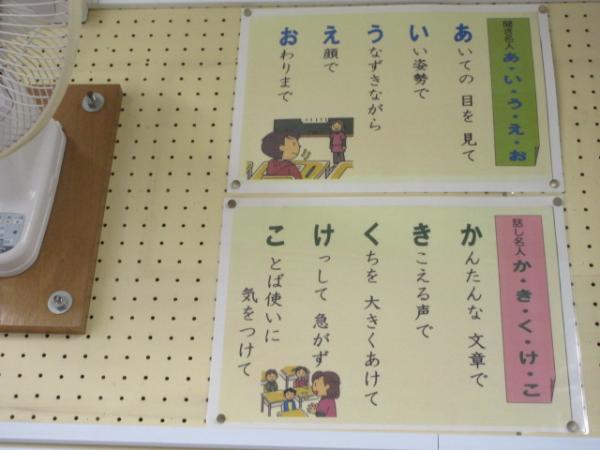 聞き名人 あ・い・う・え・お
あいての 目を 見て
いい姿勢で
うなずきながら
え顔で
おわりまで
話し名人 か・き・く・け・こ
かんたんな 文章で
きこえる声で
くちを 大きくあけて
けっして 急がず
ことば使いに
気をつけて